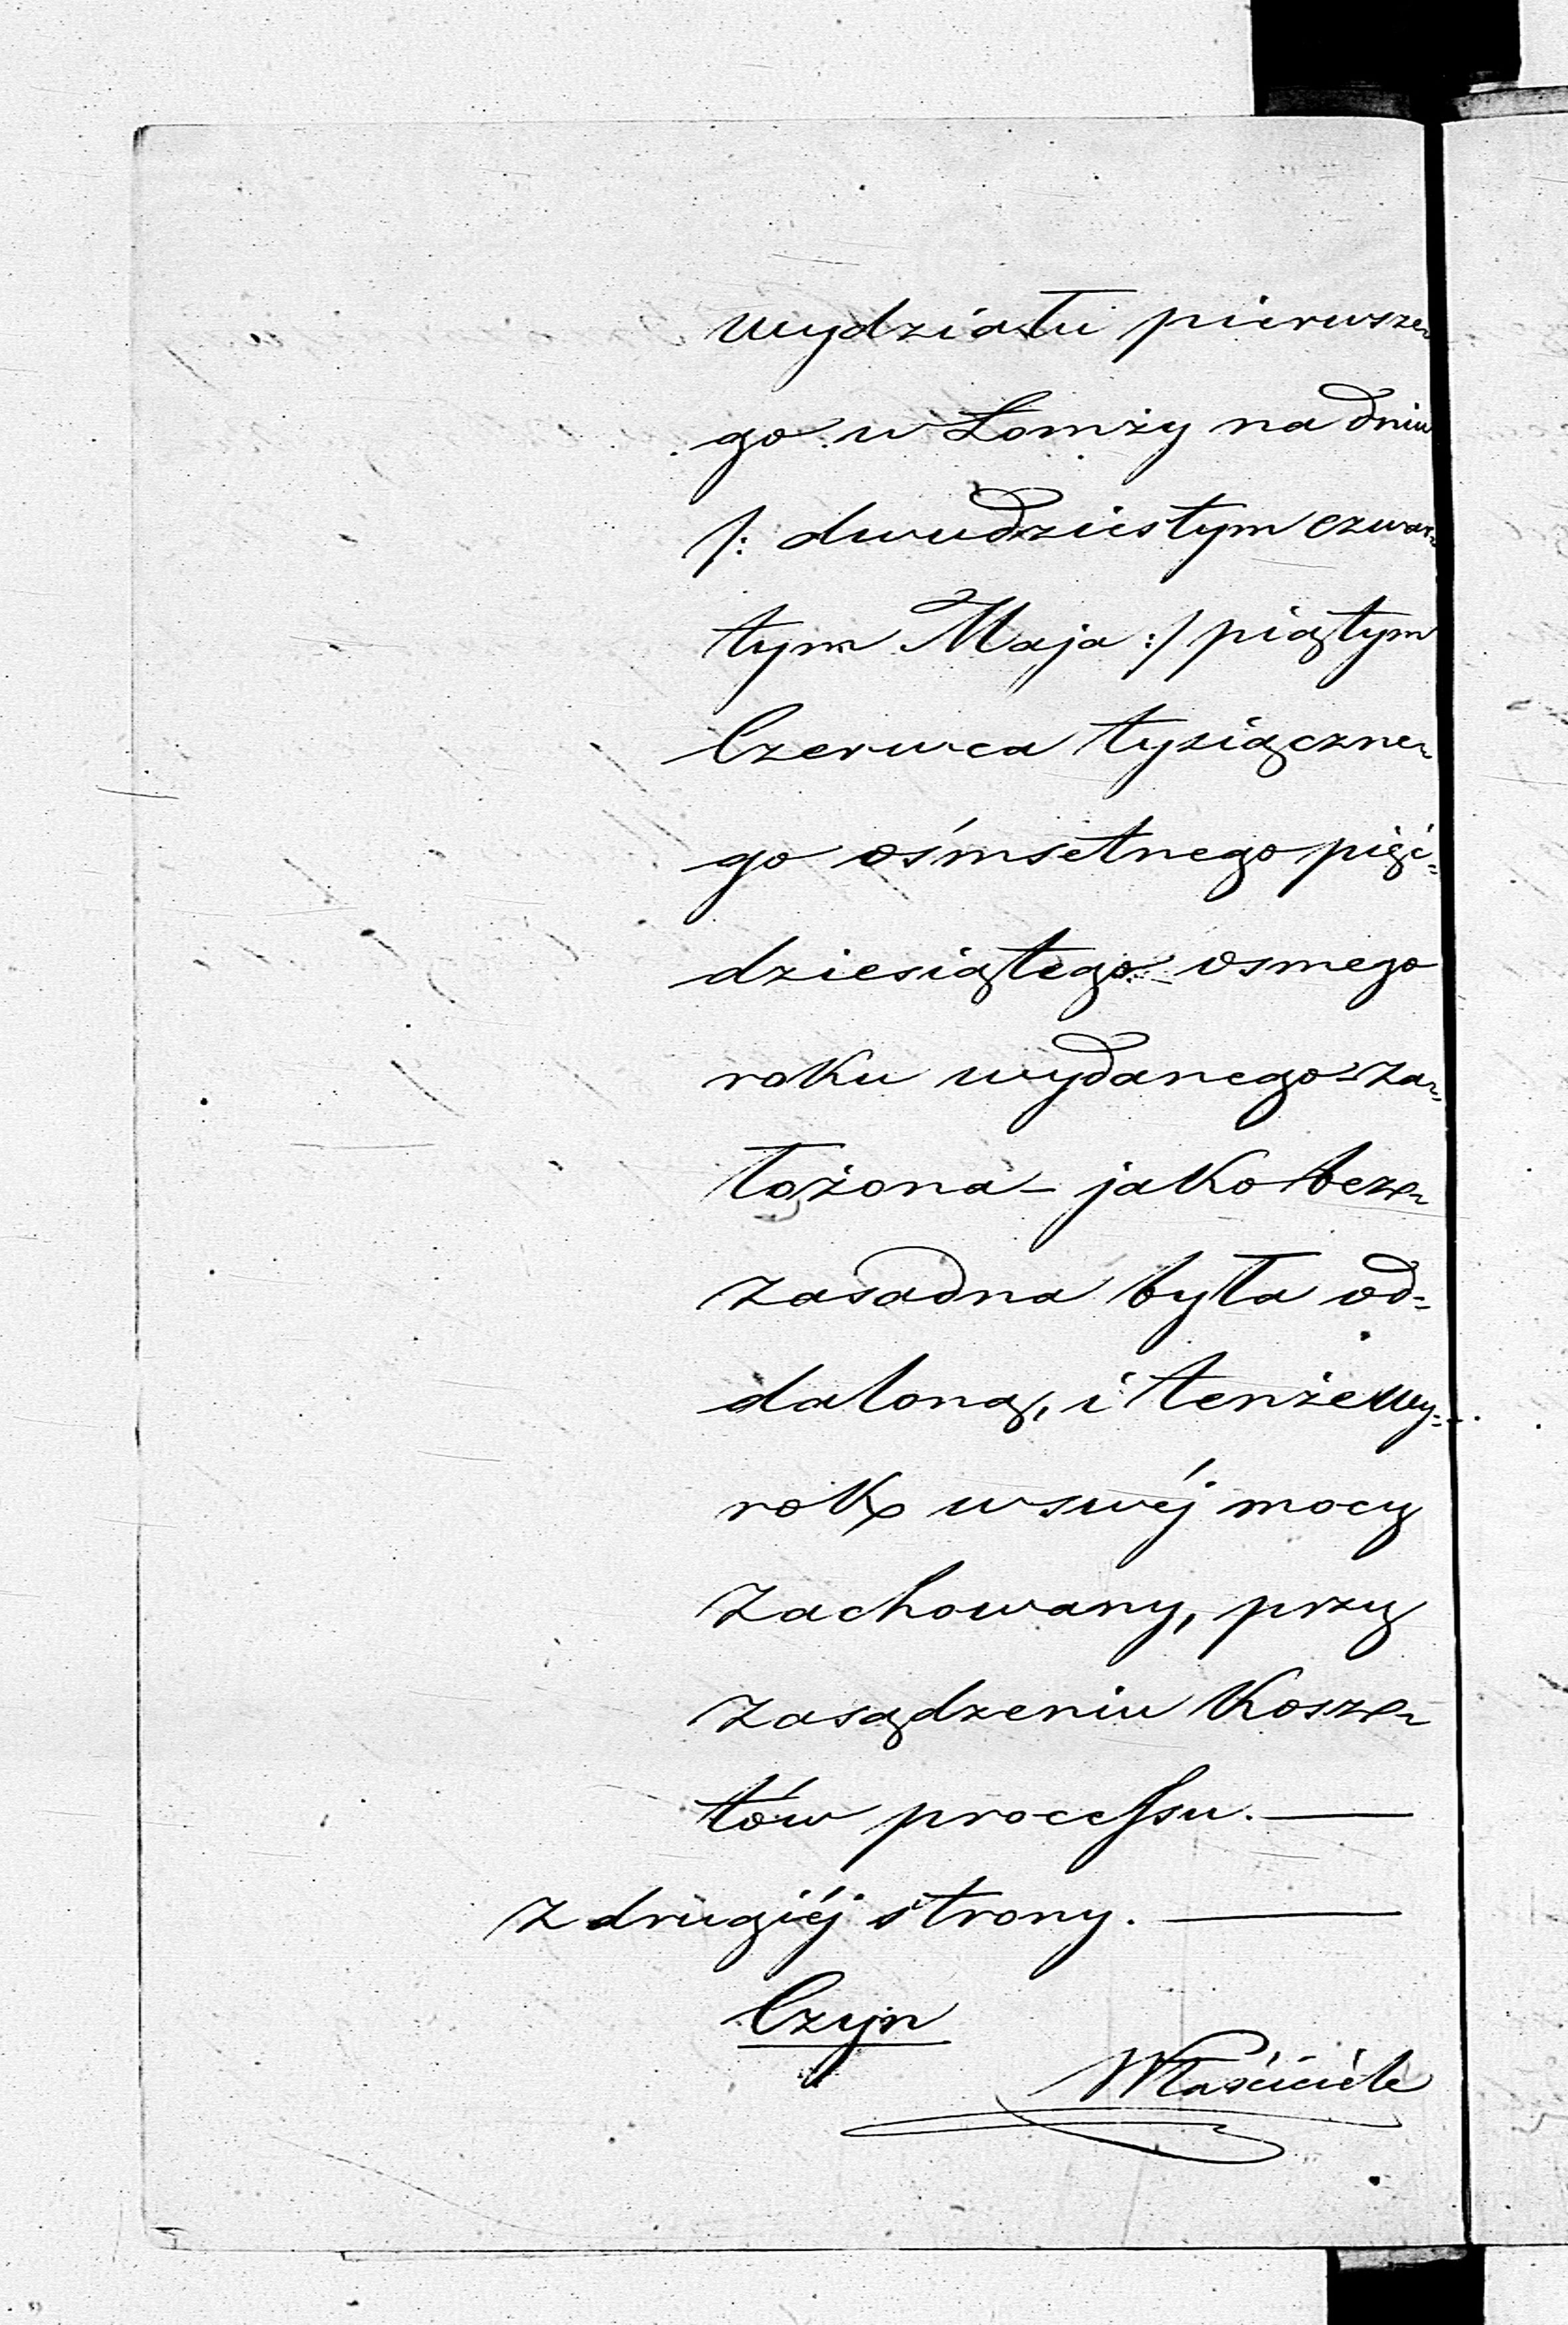 wydziału pierwsze-
go w Łomży na dniu
/: dwudziestym czwar-
tym Maja :/ piątym
Czerwca tysiączne-
go ośmsetnego pięć-
dziesiątego osmego
roku wydanego za-
łożona – jako bez-
zasadna była od-
daloną, i tenże wy-
rok w swéj mocy
zachowany, przy
zasądzeniu kosz-
tów processu. —
z drugiéj strony. —
Czyn
Właściciele